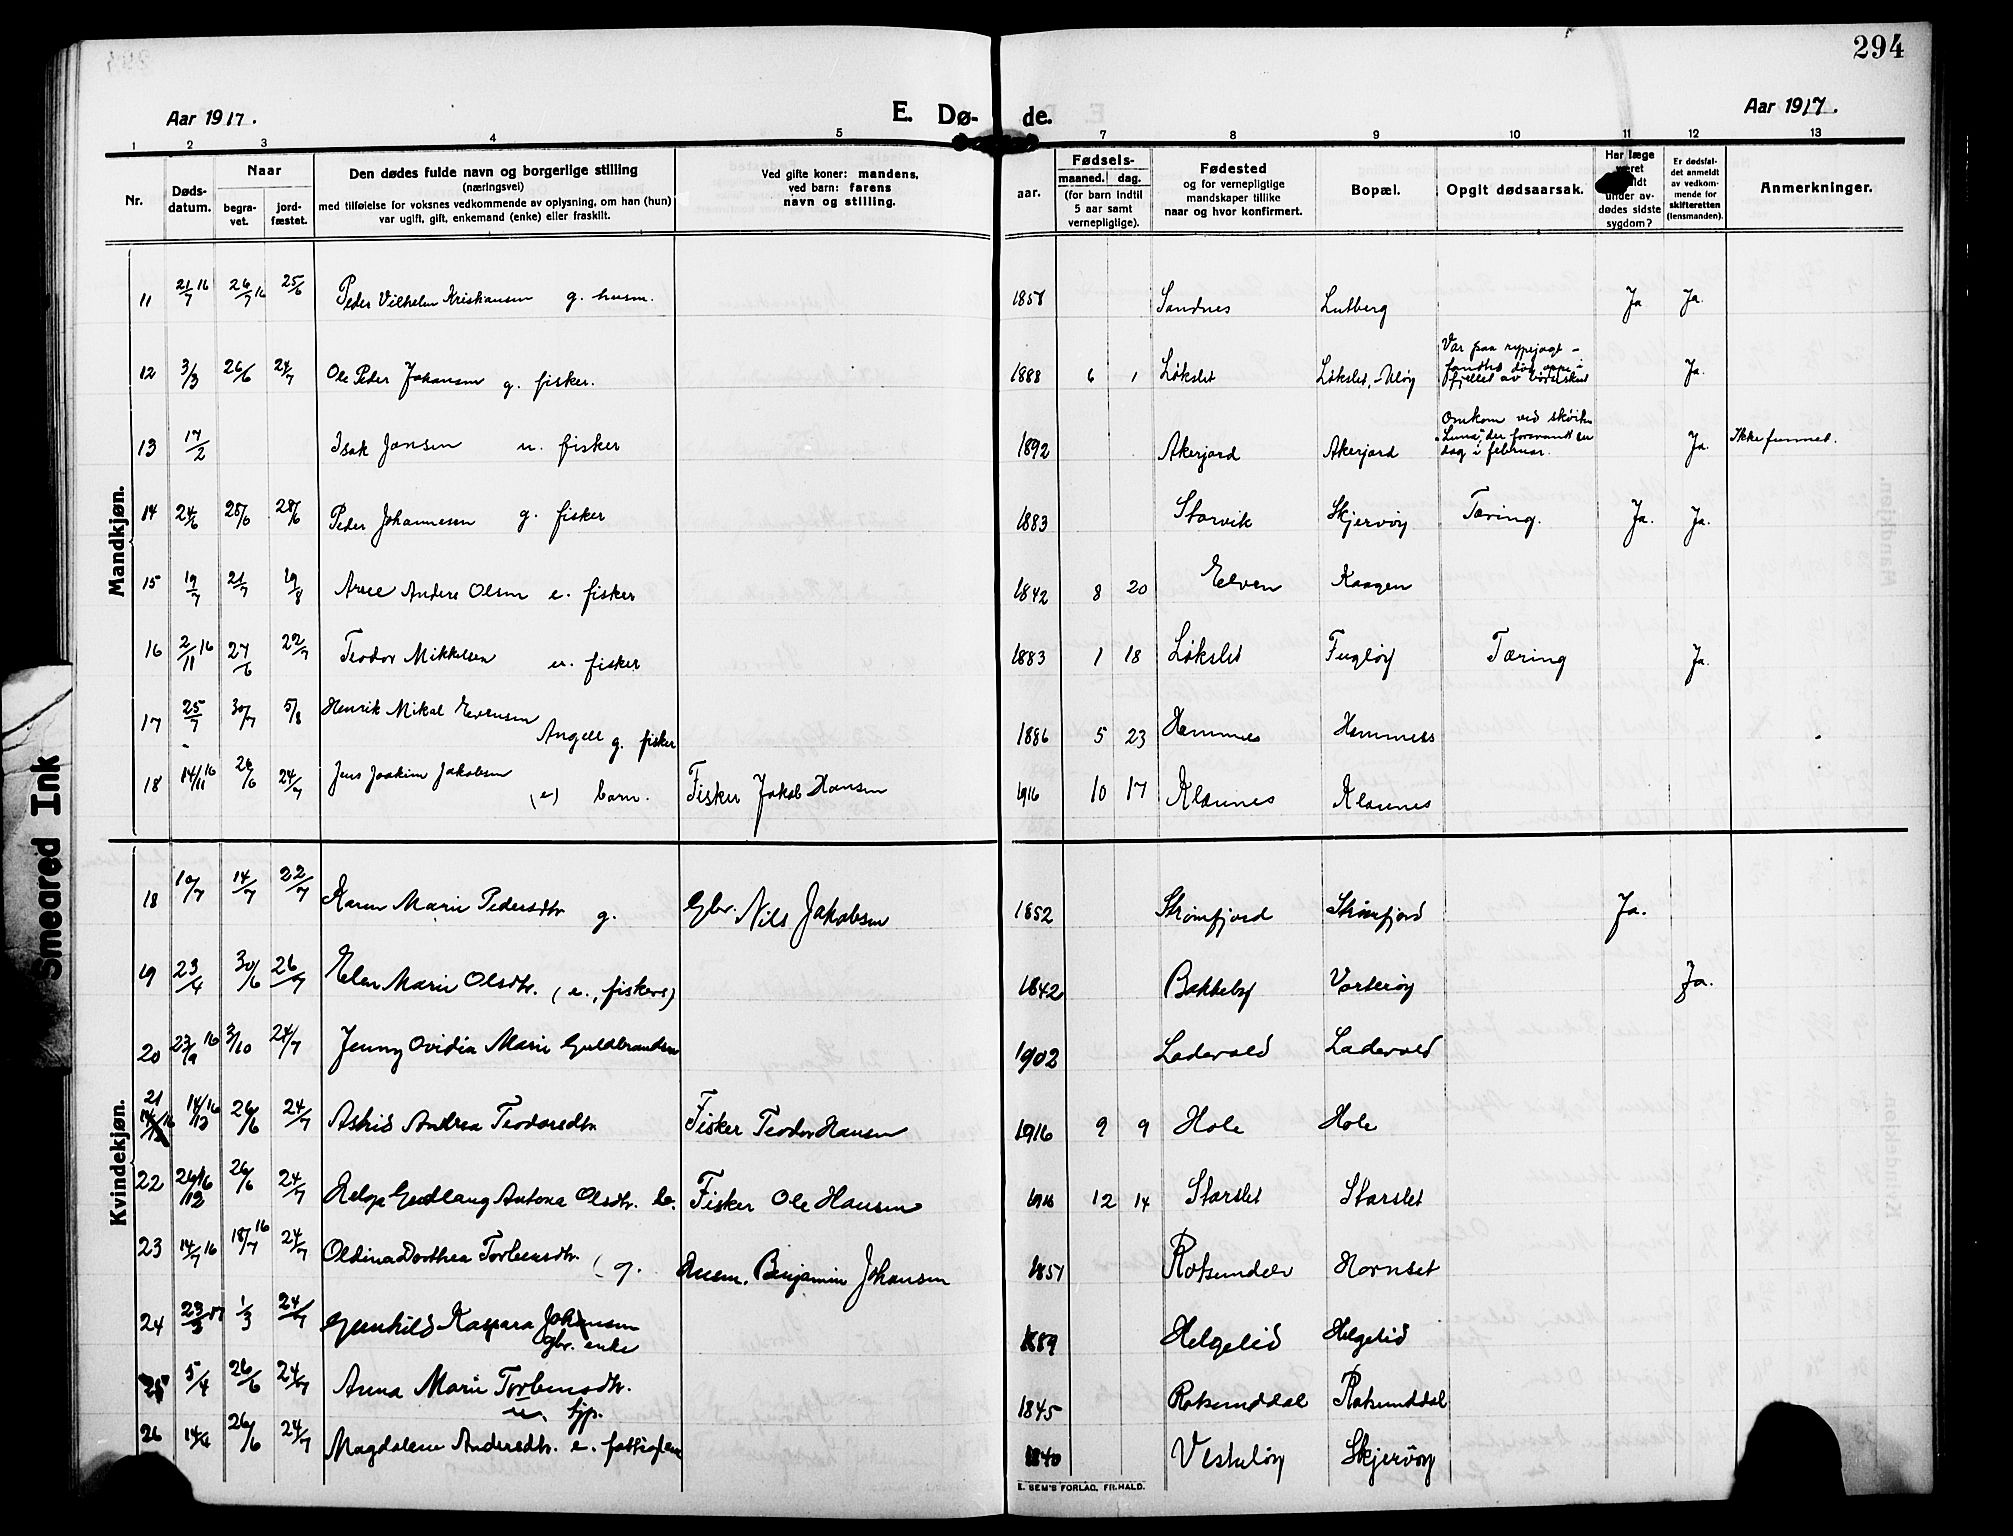 294
Aar 1917.
E. Dø- de.
Aar 1917.
1 2 3 4 5 7 8 9 10 11 12 13
Nr.
Døds-
datum.
Naar
begra-
vet.
jord-
fæstet.
Den dødes fulde navn og borgerlige stilling
(næringsvei)
med tilføielse for voksnes vedkommende av oplysning, om han (hun)
var ugift, gift, enkemand (enke) eller fraskilt.
Ved gifte koner: mandens,
ved barn: farens
navn og stilling.
aar.
Fødsels-
maaned. dag.
(for barn indtil
5 aar samt
vernepligtige).
Fødested
og for vernepligtige
mandskaper tillike
naar og hvor konfirmert.
Bopæl.
Opgit dødsaarsak.
Har læge
været
under av-
dødes sidste
sygdom?
Er dødsfal-
det anmeldt
av vedkom-
mende for
skifteretten
(lensmanden).
Anmerkninger.
Mandkjøn.
11 21/7 16 26/7 16 25/6 Peder Vilhelm Kristiansen g. husm. 1858 Sandnes Lutberg Ja Ja.
12 3/3 26/6 24/7 Ole Peder Johansen g. fisker. 1888 6 1 Løkslet Løkslet, Uløy Var paa rypejagt - fandtes død oppe i fjellet av vaadeskud Ja.
13 17/2 Isak Jansen u. fisker 1892 Akerjord Akerjord Omkom ved skøiten "Luna", der forsvandt en dag i februar. Ja. Ikke funnet.
14 24/6 28/6 28/6 Peder Johannesen g. fisker 1883 Storvik Skjervøy Tæring. Ja. Ja.
15 19/7 21/7 19/8 Andere Olsen e. fisker 1842 8 20 Elven Kaagen
16 2/11 16 27/6 22/7 Teodor Mikkelsen u. fisker 1883 1 18 Løkslet Fugløy Tæring Ja.
17 25/7 30/7 5/8 Henrik Mikal Evensen
Angell g. fisker 1886 5 23 Hamnes Hamnes
18 14/11 16 26/6 24/7 Jens Joakim Jakobsen
(e) barn. Fisker Jakob Hansen 1916 10 17 Klauvnes Klauvnes
Kvindekjøn.
18 10/7 14/7 22/7 Karen Marie Pedersdtr g. Gbr. Nils Jakobsen 1852 Strømfjord Strømfjord Ja.
19 23/4 30/6 26/7 Elen Marie Olsdtr. (e., fiskers) 1842 Bakkeby Vorterøy Ja.
20 23/9 16 3/10 24/7 Jenny Ovidia Marie Guldbrandsen 1902 Ladevold Ladevold
21 14/12 16 26/6 24/7 Astrid Andrea Teodorsdtr Fisker Teodor Hansen 1916 9 9 Hole Hole
22 26/12 16 26/6 24/7 Helga Gudlaug Antona Olsdtr. b. Fisker Ole Hansen 1916 12 14 Storslet Storslet
23 14/7 16 18/7 16 24/7 Oldina Dorthea Torbensdtr. (g. Husm. Benjamin Johansen 1851 Rotsundelv Hornset
24 23/3 17 1/3 24/7 Gunhild Kaspara Johansen
gbr. enke 1889 Helgelid Helgelid
25 5/4 26/6 24/7 Anna Marie Torbensdtr.
u. tjp. 1845 Rotsunddal Rotsunddal
26 14/4 26/6 24/7 Magdalene Andersdtr. e. fattiglem 1840 Skjervøy
E. SEM'S FORLAG, FR.HALD.
Smeared Ink